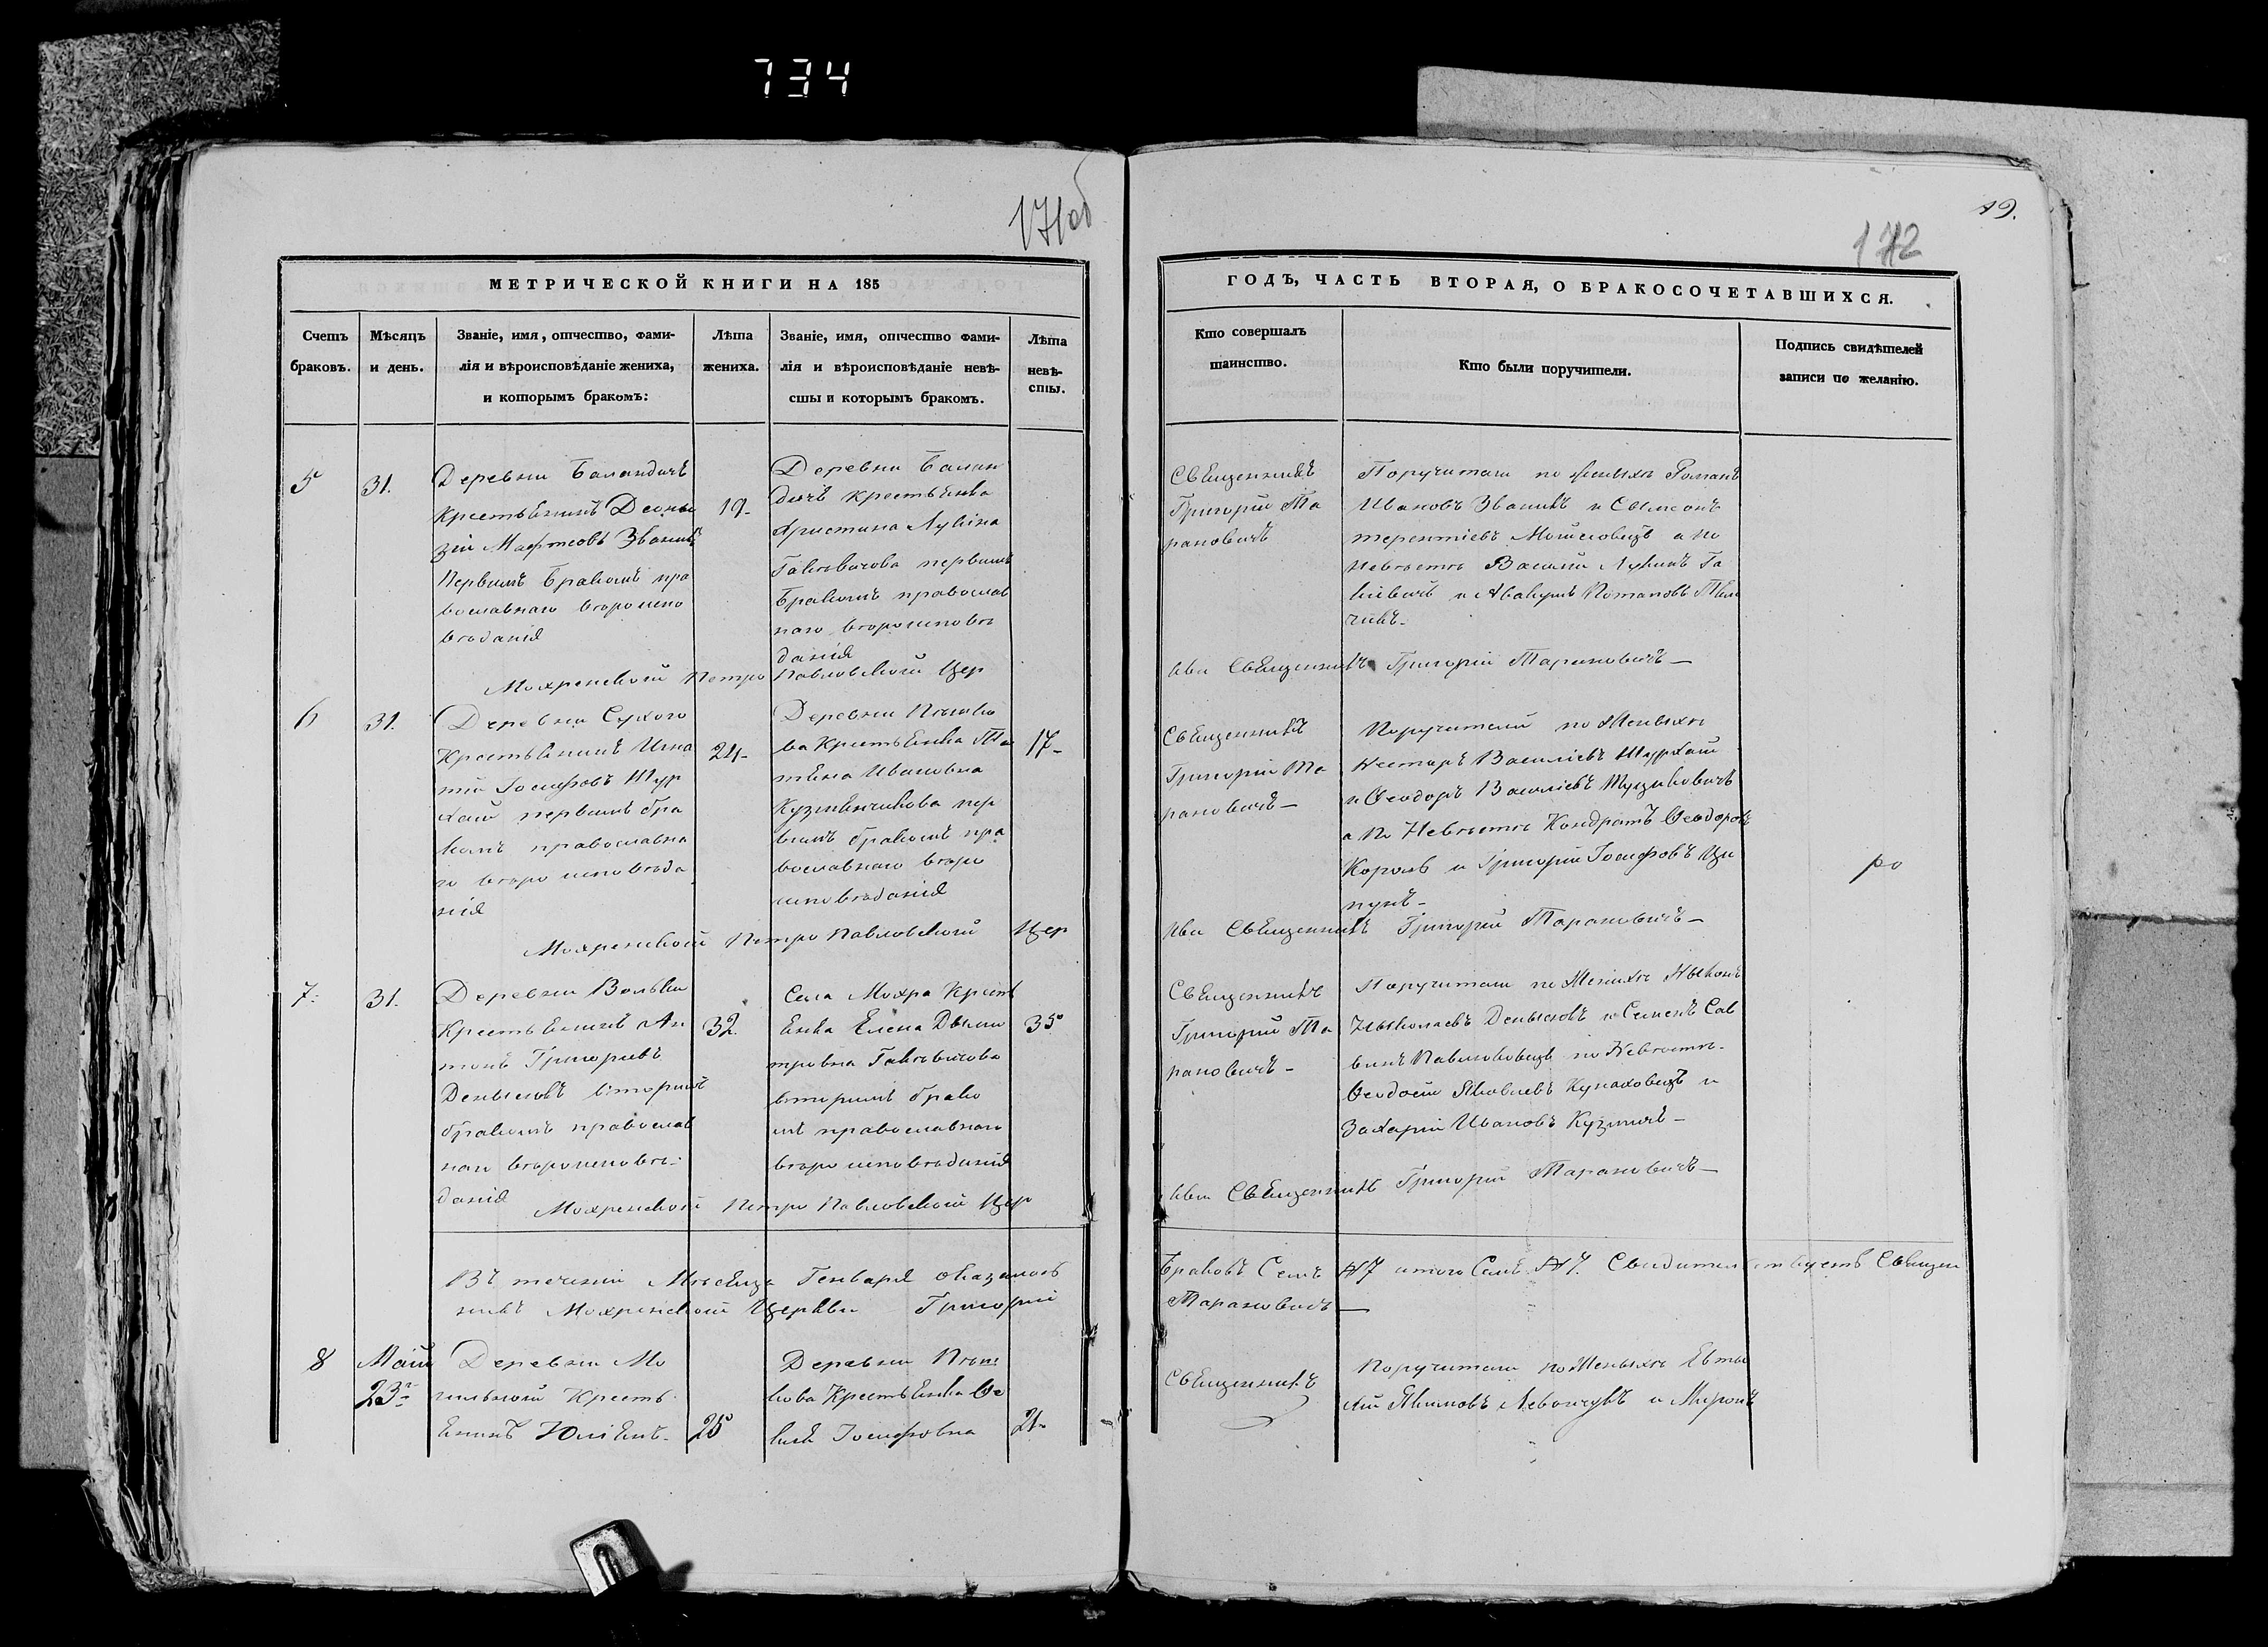 734
171об
19.
172
МЕТРИЧЕСКОЙ КНИГИ НА 185
ГОДЪ, ЧАСТЬ ВТОРАЯ, О БРАКОСОЧЕТАВШИХСЯ.
Счетъ браковъ.
Мѣсяцъ и день.
Званіе, имя, отчество, фами-
лія и вѣроисповѣданіе жениха,
и которымъ бракомъ:
Лѣта
жениха.
Званіе, имя, отчество фами-
лія и вѣроисповѣданіе невѣ-
сты и которымъ бракомъ.
Лѣта
невѣ-
сты.
Кто совершалъ
таинство.
Кто были поручители.
Подпись свидѣтелей
записи по желанію.
5
31.
Деревни Баландичъ
Крестьянинъ Деоны
зій Матфеовъ Званикъ
Первымъ Бракомъ пра
вославнаго вѣроиспо
вѣданія
19-
Деревни Балан
дичъ Крестьянка
Христина Лукіна
Гаковичова первымъ
Бракомъ православ
наго вѣроисповѣ
данія
Священникъ
Григорій Та
рановичъ
Поручители по Женихѣ Романъ
Ивановъ Званикъ и Сымеонъ
терентіевъ а по
Невѣстѣ Василій Лукинъ Га
и Авакумъ Потаповъ
чикъ-
Мохренской Петро Павловской Цер
кви Священникъ Григорій Тарановичъ—
6
31.
Деревни Сухого
Крестьянинъ Игна
тій Іосифовъ Шур
хай первымъ бра
комъ православна
го вѣро исповѣда
нія
24-
Деревни Пѣшко
ва Крестьянка Та
тяна Ивановна
Кузмянчикова пер
вымъ бракомъ пра
вославнаго вѣро
исповѣданія
17-
Священникъ
Григорій Та
рановичъ—
Поручители по Женыхѣ
Нестаръ Василіевъ Шурхай
и Феодоръ Василіевъ
а по Невѣстѣ Кондратъ Феодоровъ
Король и Григорій Іосифовъ Ци
пукъ-
ро
Мохренской Петро Павловской Цер
кви Священникъ Григорій Тарановичъ—
7:
31.
Деревни Вольки
Крестьянинъ Ан
тонъ Григорьевъ
Денысовъ вторымъ
бракомъ православ
наго вѣроисповѣ-
данія
32.
Села Мохра Крест
янка Елена Дыми
тровна Гаковичова
вторымъ брако
мъ православнаго
вѣро исповѣданія
35
Священникъ
Григорій Та
рановичъ-
Поручители по Женихѣ Ныконъ
Ныколаевъ Денысовъ и Семенъ Сав
винъ по Невѣстѣ-
Феодосій Яковлевъ и
Захарій Ивановъ Кузмичъ—
Мохренской Петро Павловской Цер
кви Священникъ Григорій Тарановичъ—
Въ теченіи Мѣсяца Генваря оказалось Браковъ Семъ №7 итого Семъ №7. Свидительствуетъ Священ
никъ Мохренской Церкви Григорій Тарановичъ—
8
Маій
23-
Деревни Мо
гильной Кресть-
янинъ Юліянъ-
25
Деревни Пѣш
кова Крестьянка Фе
кля Іосифовна
21-
Священникъ
Поручители по Женыхѣ Евты
хій Якимовъ Левончукъ и Миронъ